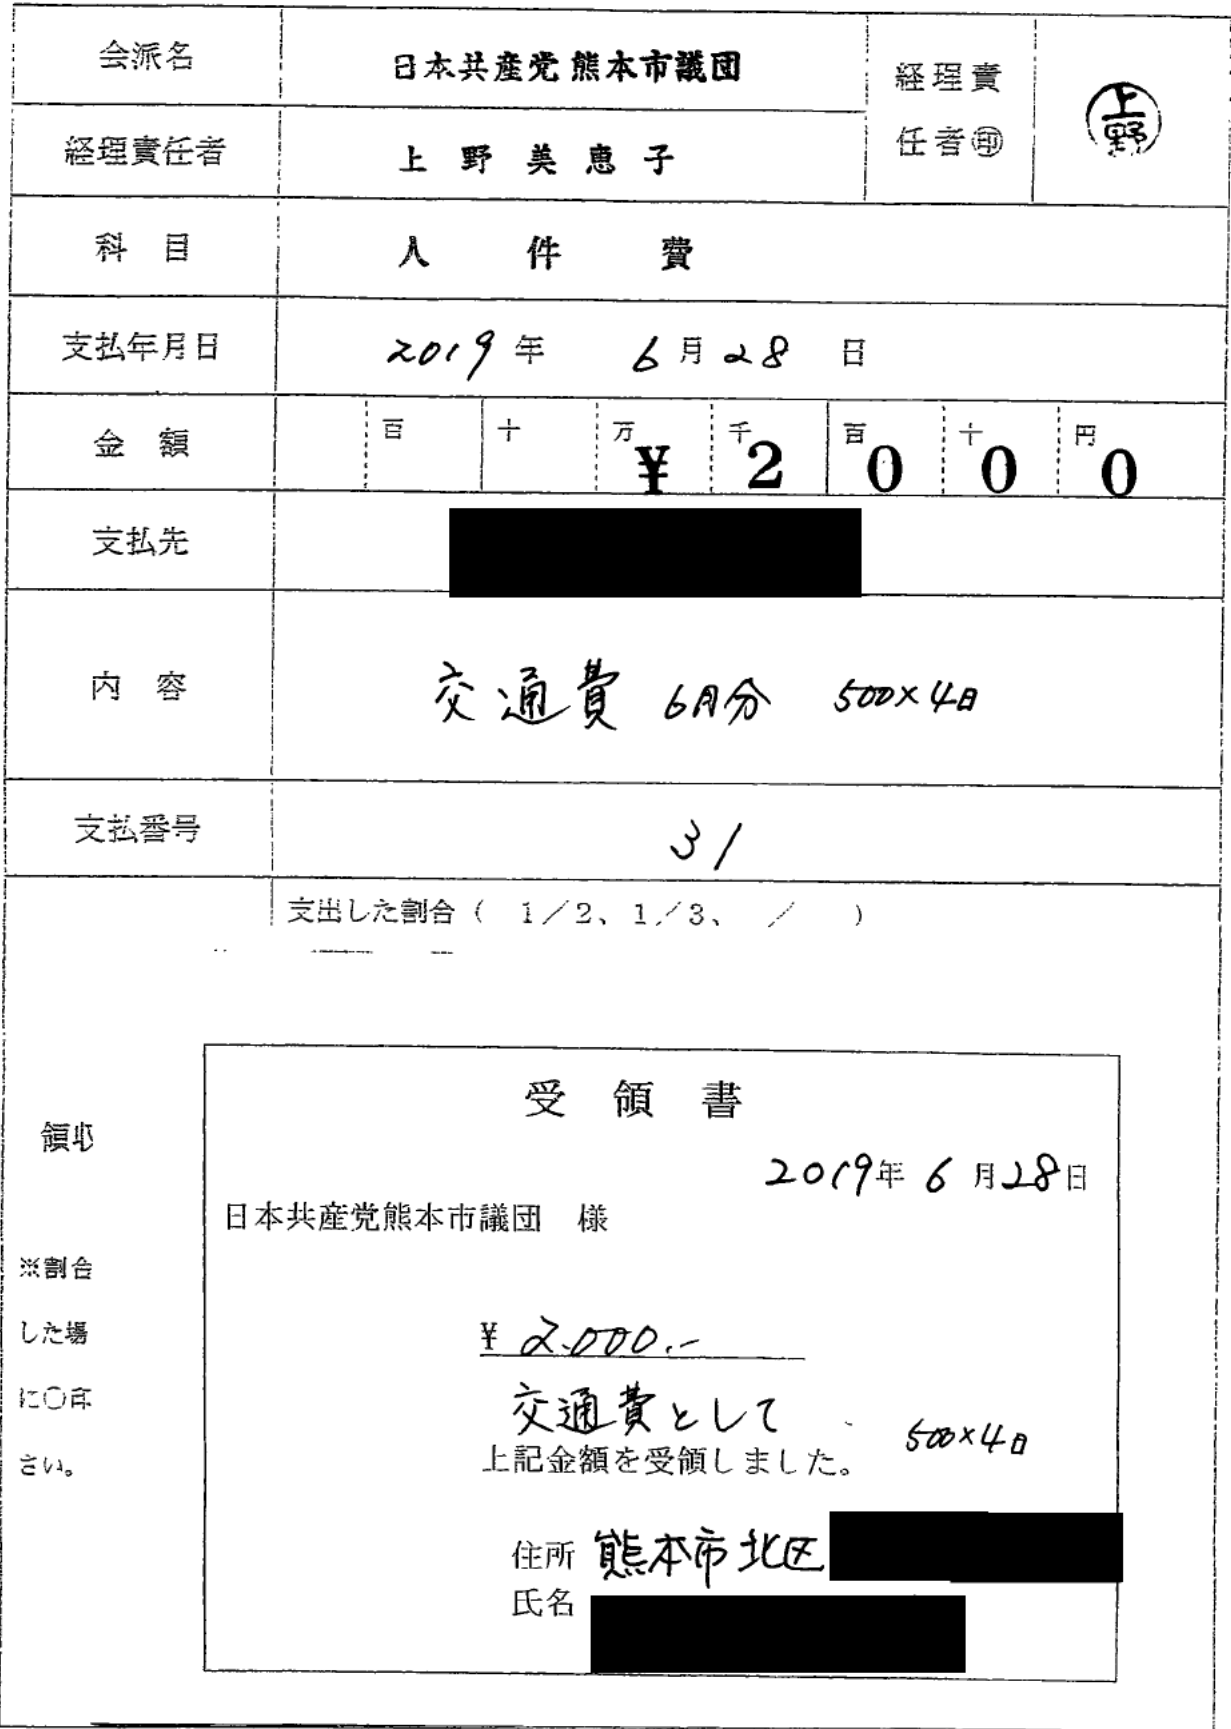 会派名 日本共産党熊本市議団 経理責任者㊞ 上野
経理責任者 上野美恵子
科目 人件費
支払年月日 2019年 6月28日
金額 百 十 万 千 百 十 円
¥2000
支払先
内容 交通費 6月分 500×4日
支払番号 31
支出した割合（ 1／2、1／3、 ／ ）
受領書
領収
2019年6月28日
日本共産党熊本市議団 様
※割合
した場
¥2.000.-
に○印
交通費として 500×4日
上記金額を受領しました。
さい。
住所 熊本市北区
氏名